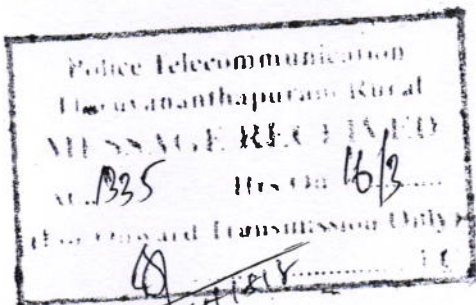 Police Telecommunication
Thiruvananthapuram Rural
MESSAGE RECEIVED
At..1335 Hrs On 16/3........
(For Onward Transmission Only)